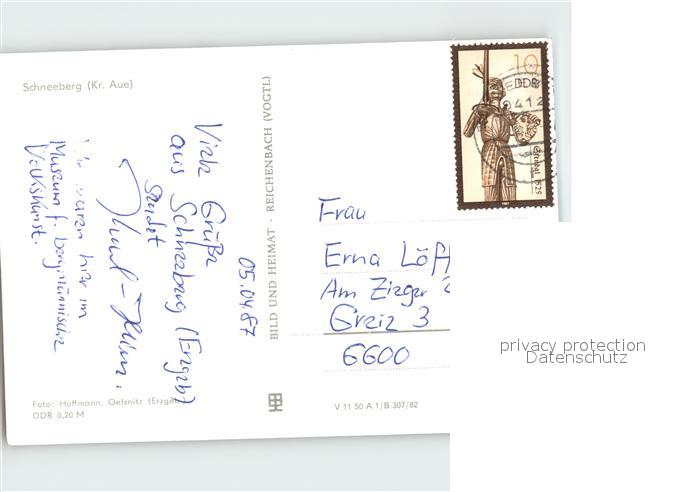 Schneeberg (Kr. Aue)
05.04.87
Viele Grüße
aus Schneeberg (Erzgeb)
sendet
Wir waren hier im
Museum f. bergmännische
Volkskunst.
Foto: Hoffmann, Oelsnitz (Erzgeb.)
DDR 0,20 M
BILD UND HEIMAT · REICHENBACH (VOGTL)
V 11 50 A 1/B 307/82
10
DDR
Stendal 1525
Frau
Erna Löff
Am Zieger
Greiz 3
6600
privacy protection
Datenschutz